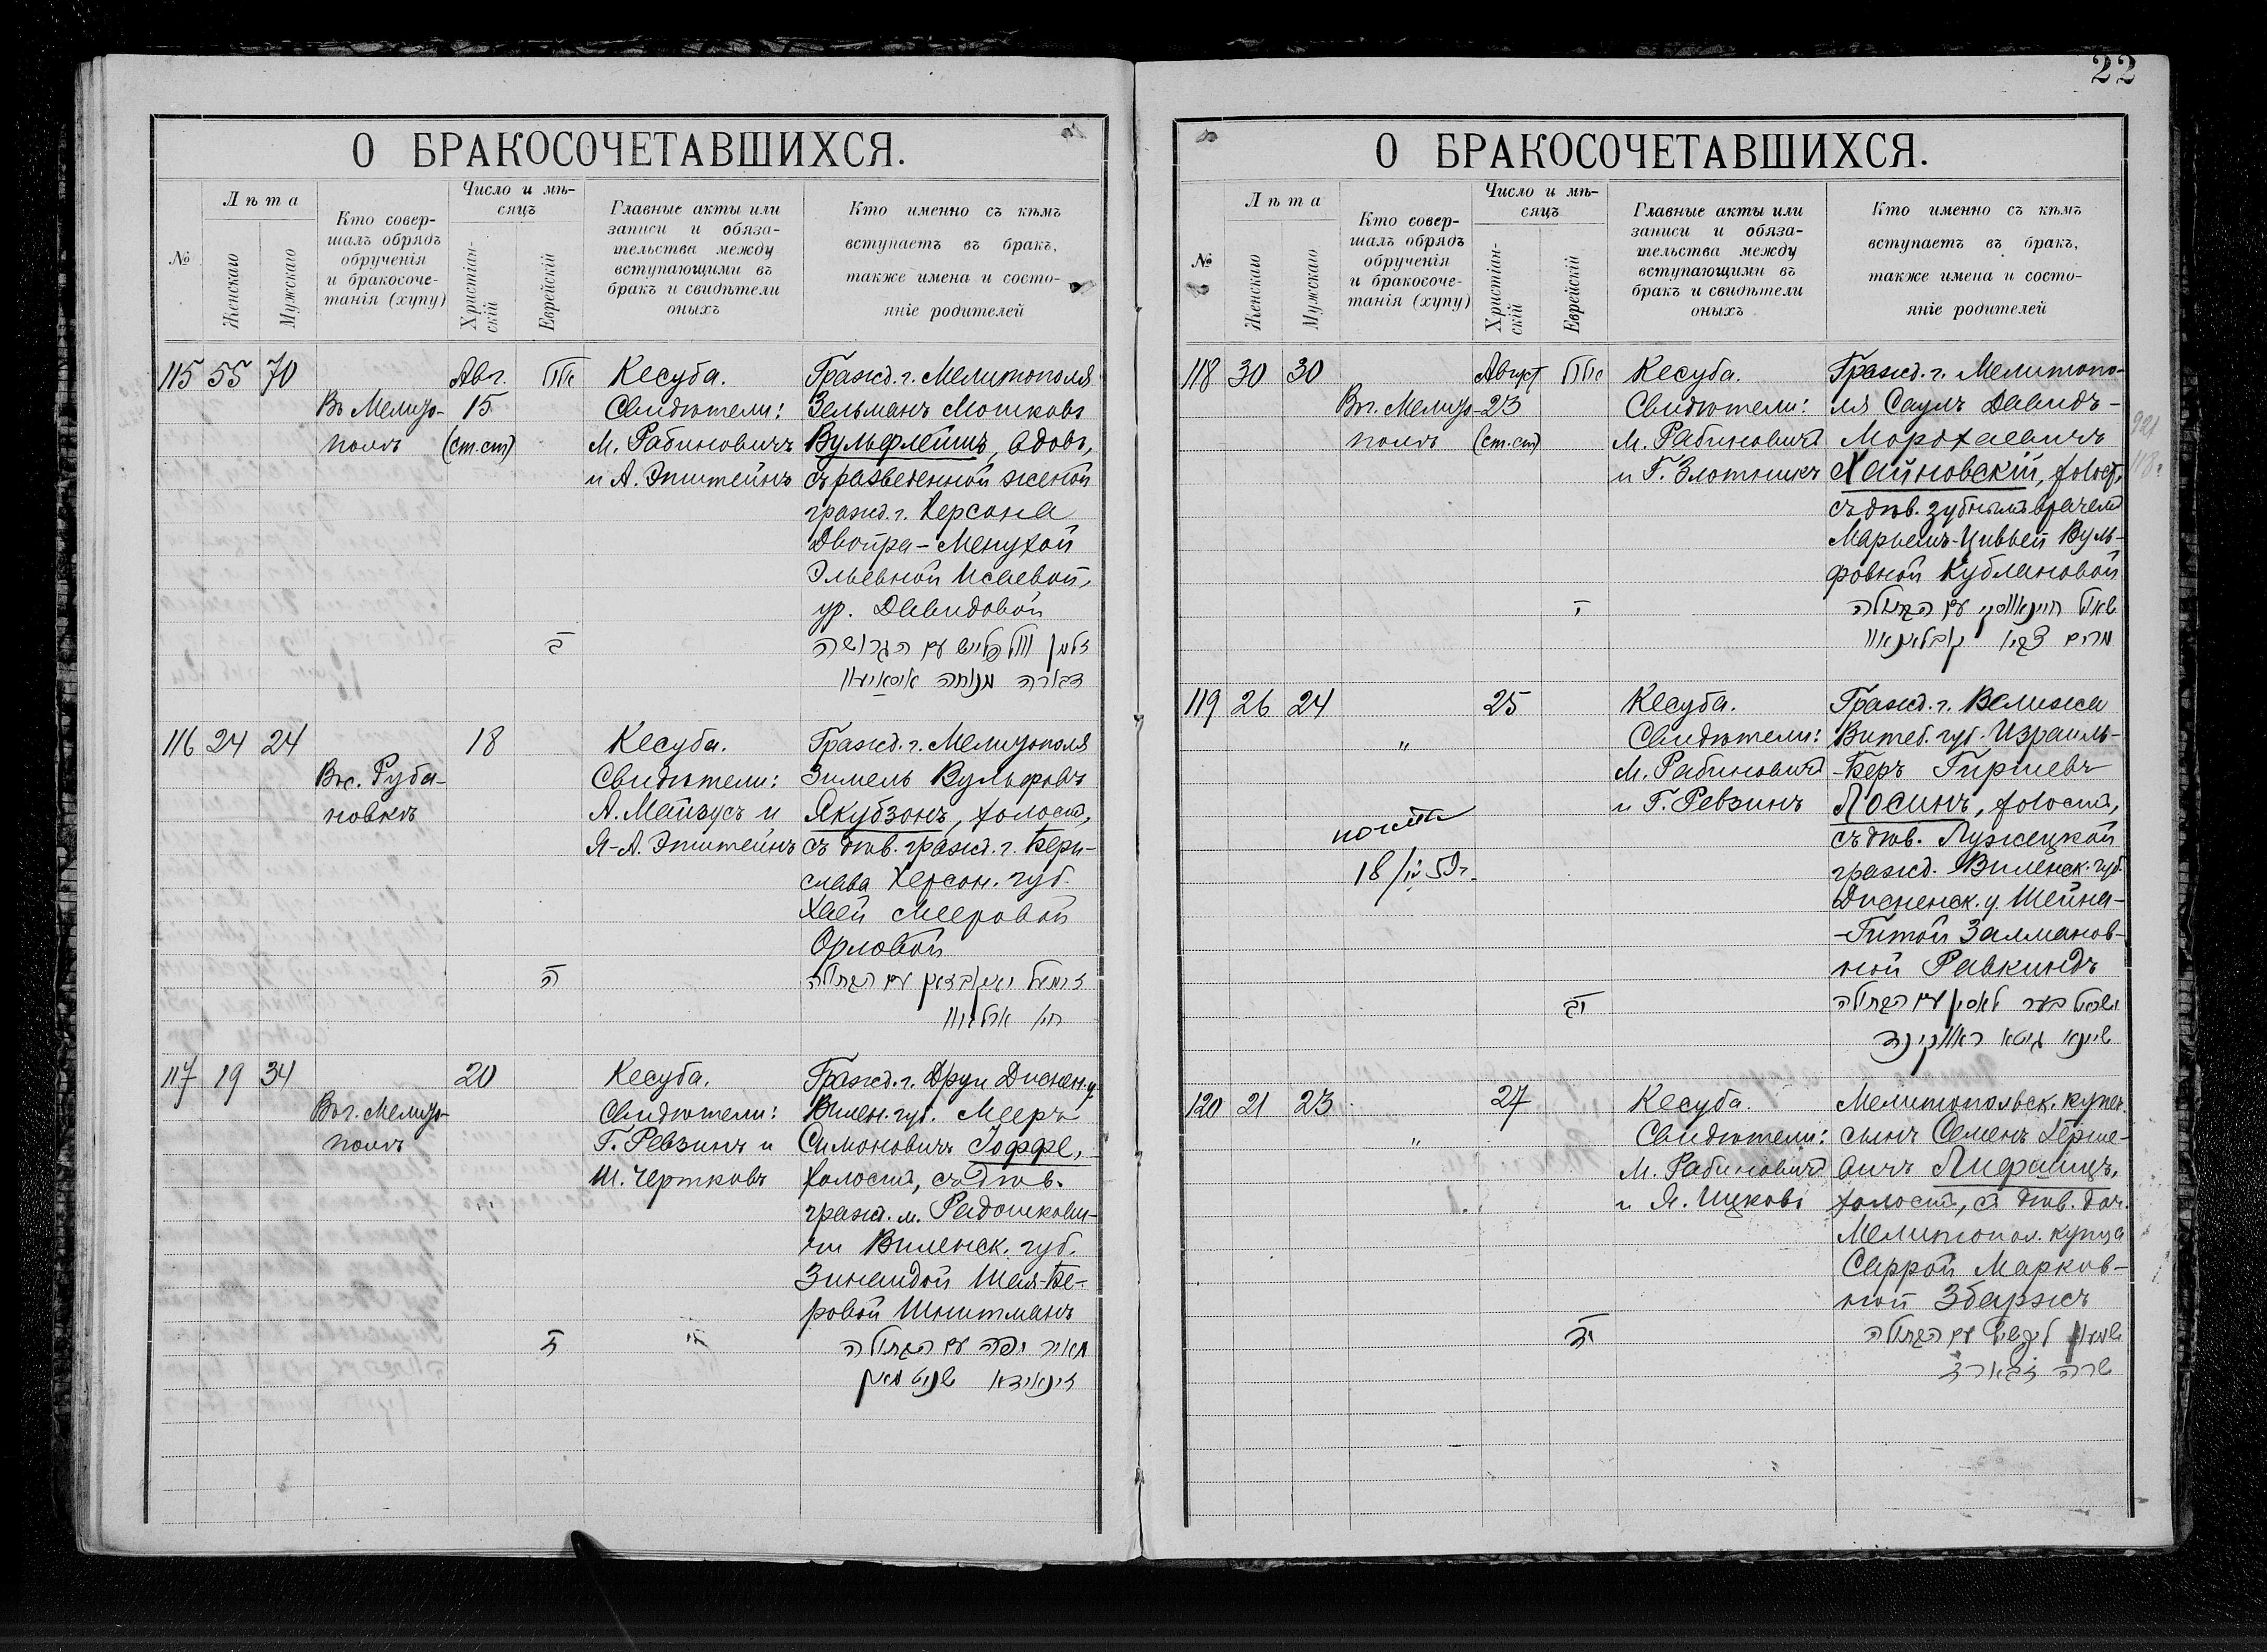 22
О БРАКОСОЧЕТАВШИХСЯ.
№
Лѣта
Женскаго
Мужскаго
Кто совер-
шалъ обрядъ
обрученія
и бракосоче-
танія (хупу)
Число и мѣ-
сяцъ
Христіан-
скій
Еврейскій
Главные акты или
записи и обяза-
тельства между
вступающими въ
бракъ и свидѣтели
оныхъ
Кто именно съ кѣмъ
вступаетъ въ бракъ,
также имена и состо-
яніе родителей
115 55 70
Въ Мелито-
полѣ
Авг.
15
(ст. ст)
Кесуба.
Свидѣтели:
М. Рабиновичъ
и А. Эпштейнъ
Гражд. г. Мелитополя
Зельманъ Мошковъ
Вульфлейшъ, вдовъ,
съ разведенной женой
гражд. г. Херсона
Двойра-Менухой
Эльевной Исаевой,
ур. Давидовой
ב
זלמן וולפלייש עם הגרושה
דבורה מנוחה
116 24 24
Въ с. Руба-
новкѣ
18
Кесуба.
Свидѣтели:
А. Майзусъ и
Я-А. Эпштейнъ
Гражд. г. Мелитополя
Зимель Вульфовъ
Якубзонъ, холост,
съ дѣв. гражд. г. Бери-
слава Херсон. губ.
Хаей Мееровой
Орловой
ה
עם הבתולה
117 19 34
Въ г. Мелито-
полѣ
20
Кесуба.
Свидѣтели:
Г. Ревзинъ и
Ш. Чертковъ
Гражд. г. Друи Диснен. у.
Вилен. губ. Мееръ
Симоновичъ Іоффе,
холостъ, съ дѣв.
гражд. м. Радошкови-
чи Виленск. губ.
Зинаидой Шая-Бе-
ровой Шнитманъ
ז
מאיר יפה עם הבתולה
זינאידא שניטמאן
О БРАКОСОЧЕТАВШИХСЯ.
№
Лѣта
Женскаго
Мужскаго
Кто совер-
шалъ обрядъ
обрученія
и бракосоче-
танія (хупу)
Число и мѣ-
сяцъ
Христіан-
скій
Еврейскій
Главные акты или
записи и обяза-
тельства между
вступающими въ
бракъ и свидѣтели
оныхъ
Кто именно съ кѣмъ
вступаетъ въ бракъ,
также имена и состо-
яніе родителей
118 30 30
Въ г. Мелито-
полѣ
Август
23
(ст. ст)
Кесуба.
Свидѣтели:
М. Рабиновичъ
и Г. Злотникъ
Гражд. г. Мелитопо-
ля Саулъ Давидъ-
Мордхаевичъ
Хайновскій, холост,
съ дѣв. зубнымъ врачемъ
Марьемъ-Цивьей Вуль-
фовной Кублановой
י
עם הבתולה
מרים צביא
119 26 24
„
25
Кесуба.
Свидѣтели:
М. Рабиновичъ
и Г. Ревзинъ
18/IV 59 г.
Гражд. г. Велижа
Витеб. губ. Израиль-
-Беръ Гиршевъ
Лосинъ, холостъ,
съ дѣв. Лужецкой
гражд. Виленск. губ.
Дисненск. у. Шейна-
-Гитой Залманов-
ной Равкиндъ
יב
ישראל בער לאסין עם הבתולה
שיינא גיטא ראווקינד
120 21 23
„
27
Кесуба.
Свидѣтели:
М. Рабиновичъ
и Я. Ицковъ
Мелитопольск. купеч.
сынъ Семенъ Герше-
вичъ Лифшицъ,
холостъ, съ дѣв. доч.
Мелитопол. купца
Саррой Марков-
ной Збаржъ
יד
שמעון ליפשיץ עם הבתולה
שרה זבארז